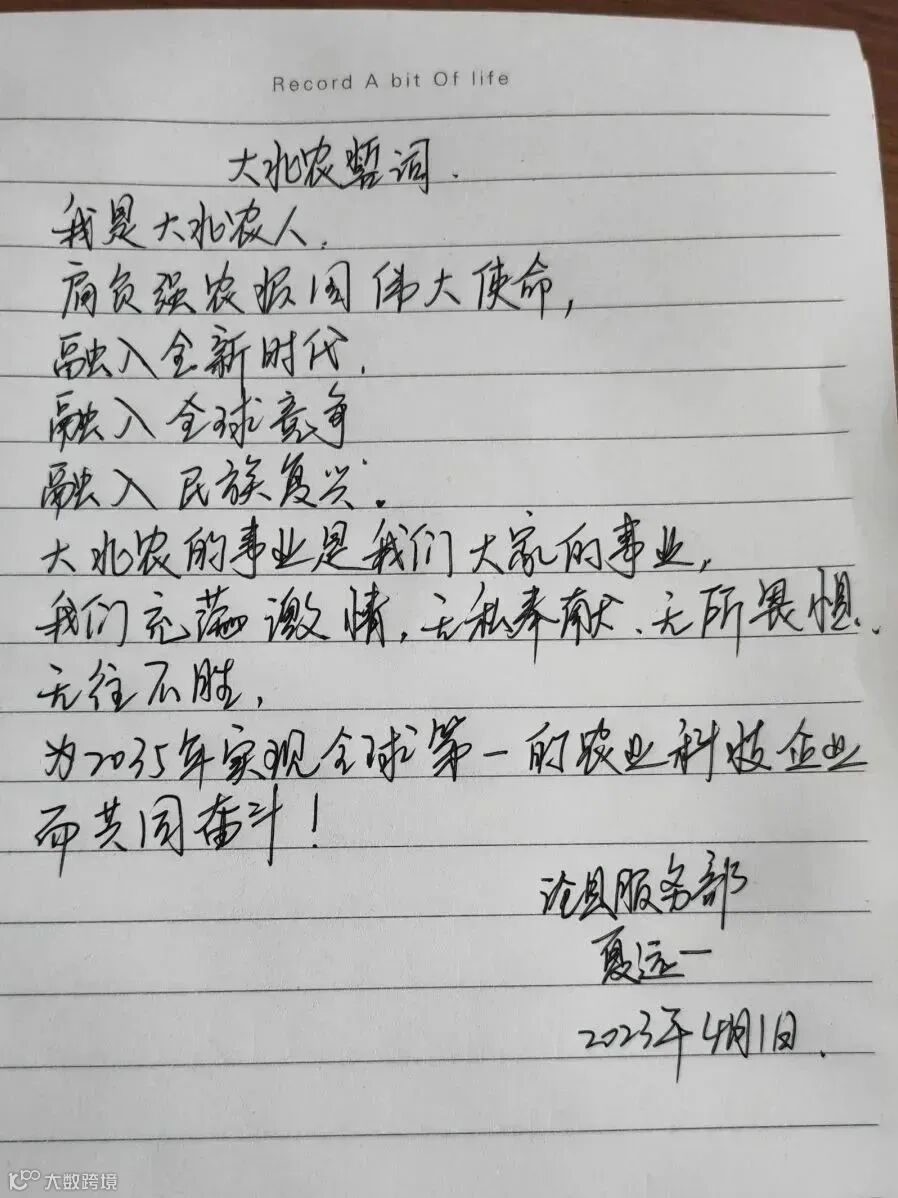 Record A bit Of life
大北农誓词.
我是大北农人,
肩负强农报国伟大使命,
融入全新时代,
融入全球竞争
融入民族复兴.
大北农的事业是我们大家的事业,
我们充满激情,无私奉献、无所畏惧、
无往不胜,
为2035年实现全球第一的农业科技企业
而共同奋斗!
沧县服务部
夏远一
2023年4月1日.
大数跨境